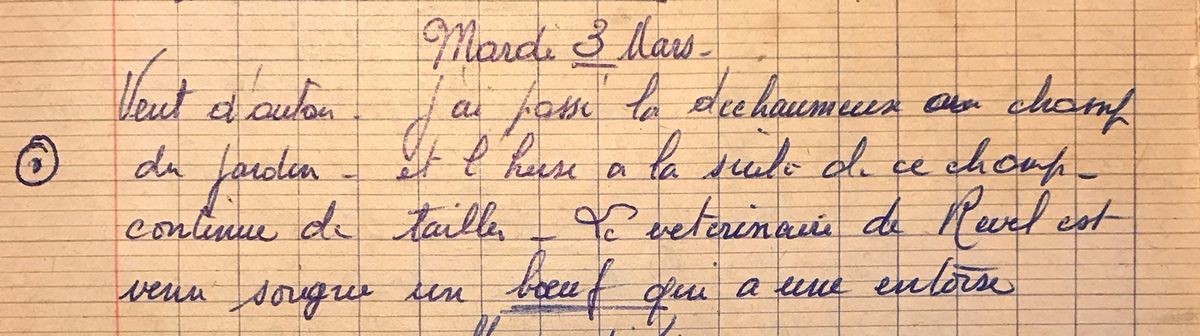 Mardi 3 Mars -
Vent d'autan - j'ai passé la dechaumeuse au champ
du jardin - et l herse a la suite de ce champ -
continue de tailler - Le veterinaire de Revel est
venu soigne un bœuf qui a une entorse